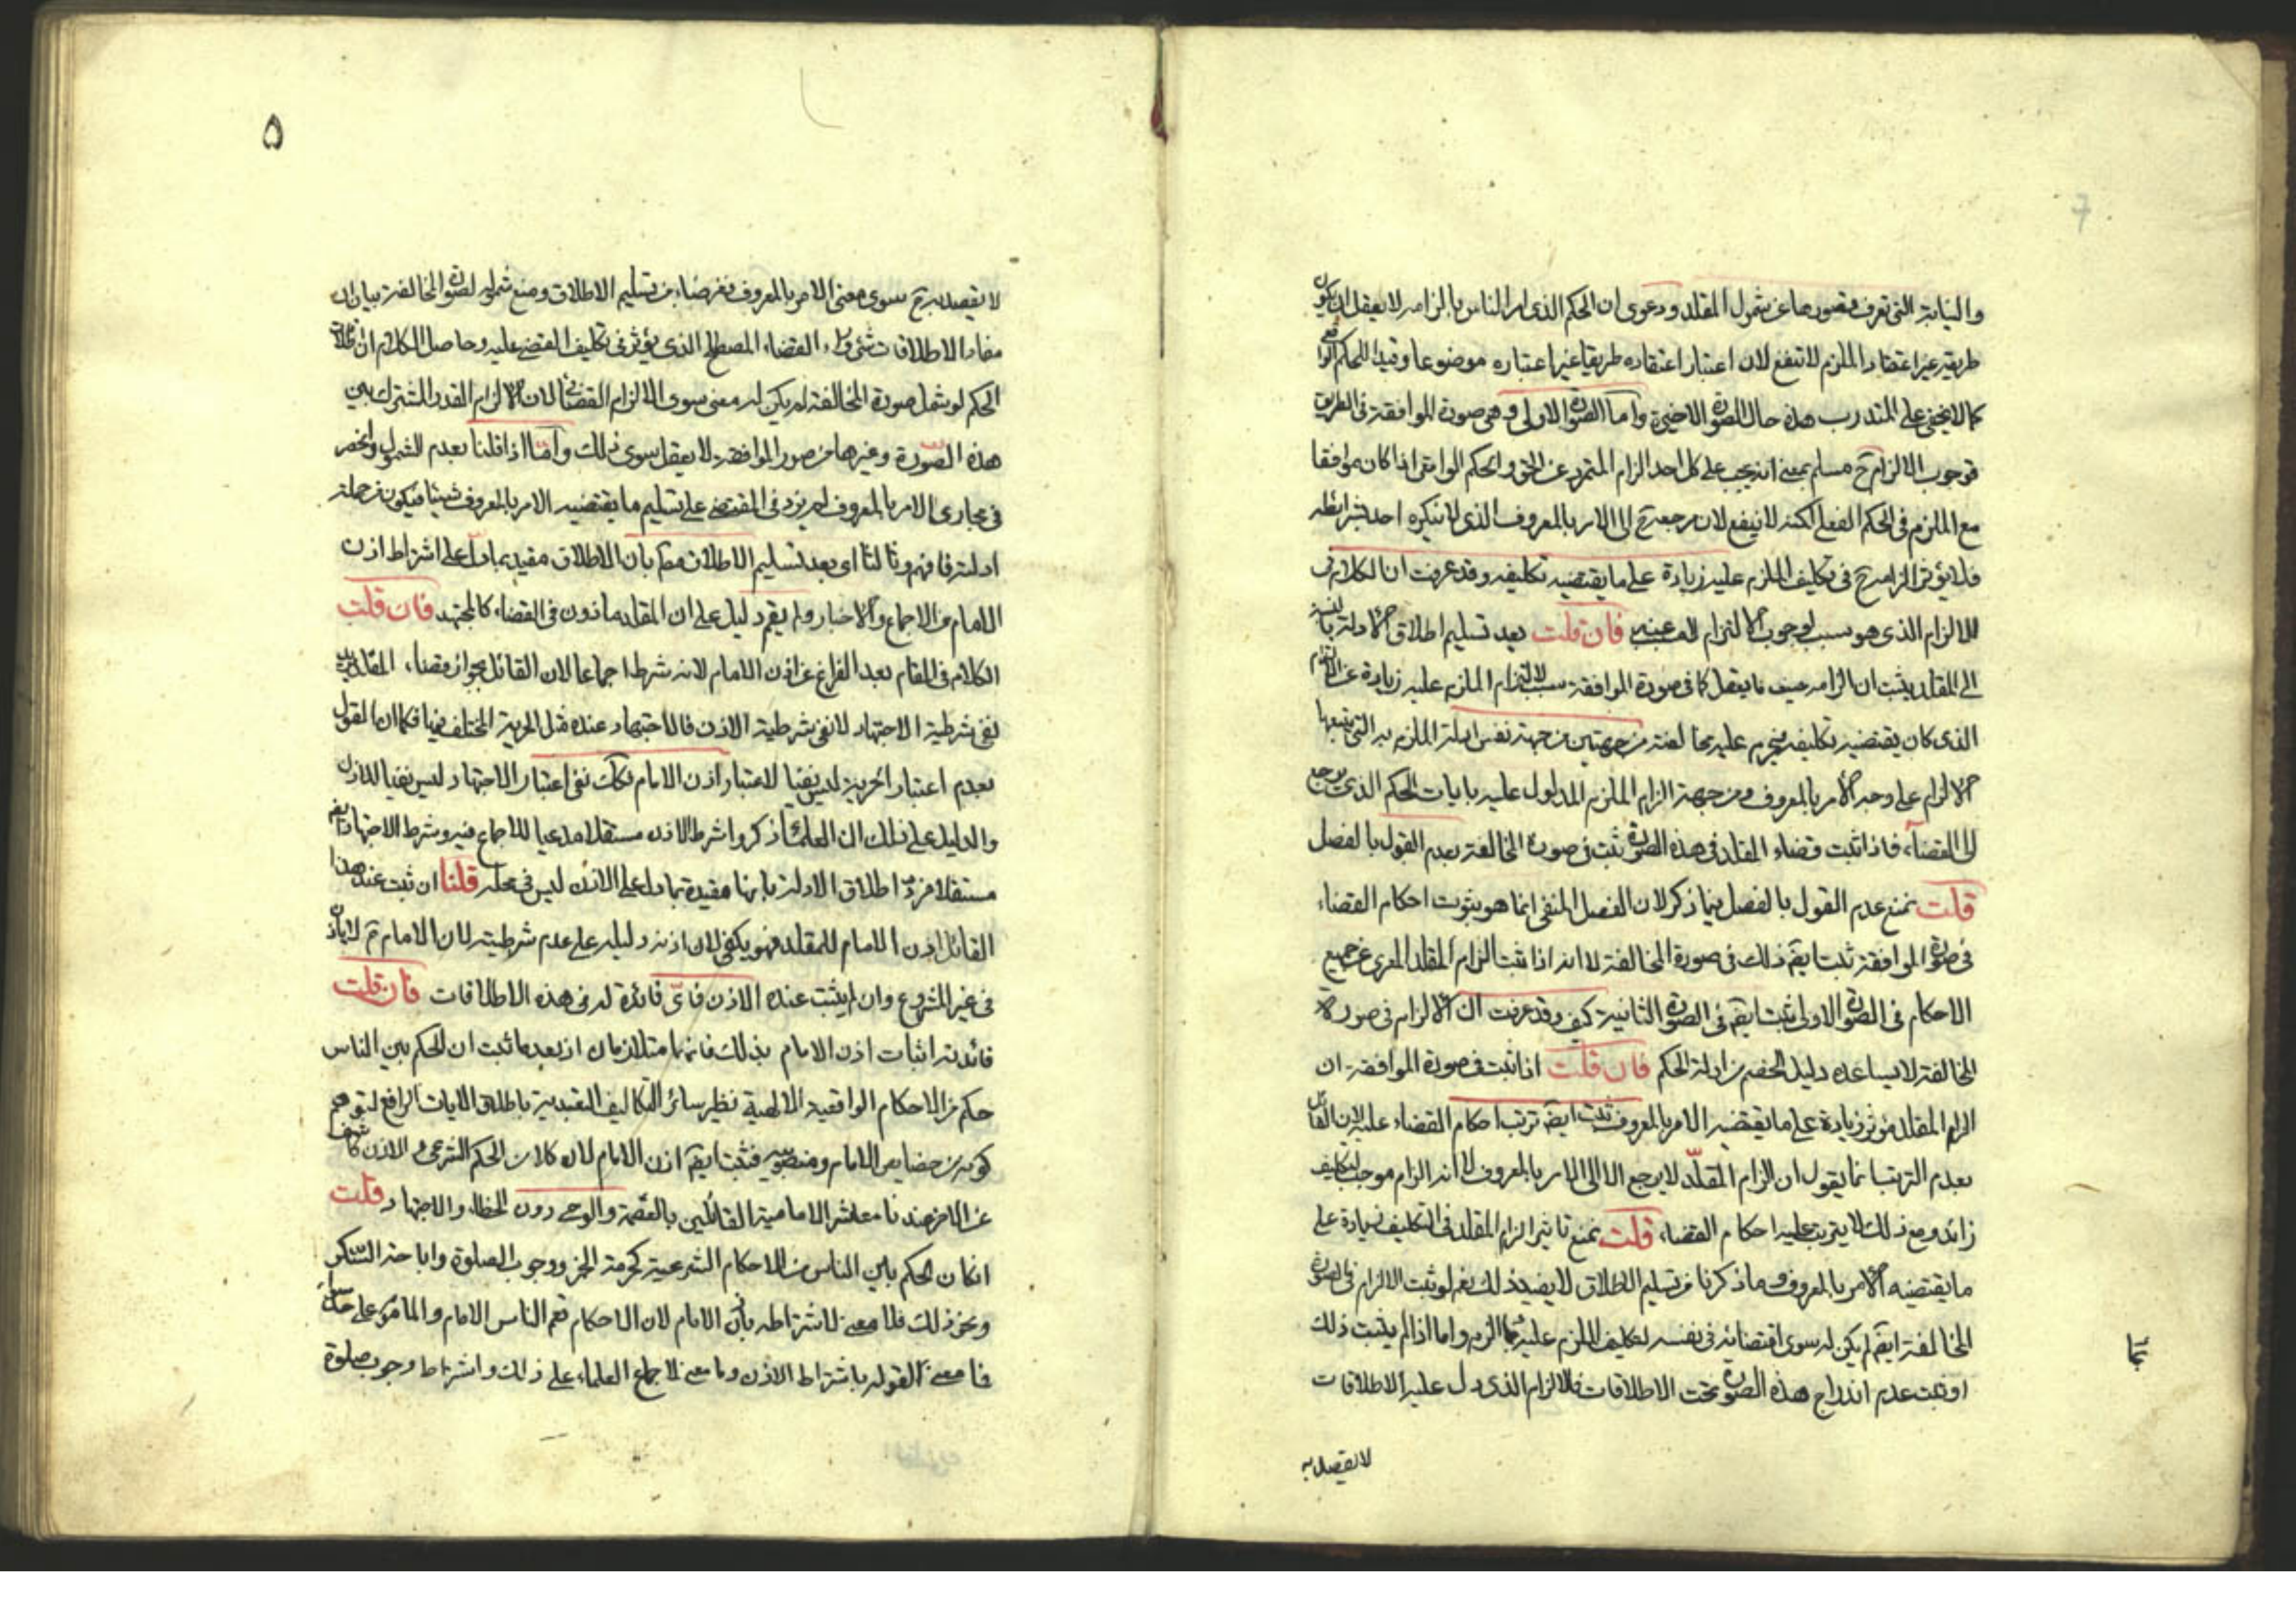 والنيابة التى نعرف بقصورها عن شمول المقلد ودعوى ان الحكم الذى امر الناس بالزامه لا يعقل ان يكون
طريقه غير اعتقاد الملزم لا تنفع لان اعتبار اعتقاده طريقا غير اعتباره موضوعا وقيدا للحكم
كما لا يخفى على المتدرب هذه حال الصورة الاخيرة واما الصورة الاولى وهى صورة الموافقة فى الطريق
فوجوب الالزام ح مسلم بمعنى انه يجب على كل احد الزام المتمرد عن الحق والحكم الواقعى اذا كان موافقا
مع الملزم فى الحكم الفعلى لكنه لا ينفع لان مرجعه ح الى الامر بالمعروف الذى لا ينكره احد بشرائطه
فلا يؤثر الزامه ح فى تكليف الملزم عليه زيادة على ما يقتضيه تكليفه وقد عرفت ان الكلام فى
الالزام الذى هو سبب لوجوب الالتزام فان قلت بعد تسليم اطلاق الادلة بالنسبة
الى المقلد يثبت ان الزامه حيث ما يعقل كما فى صورة الموافقة سبب لالتزام الملزم عليه زيادة عن الالتزام
الذى كان يقتضيه تكليفه فيحرم عليه مخالفته من جهتين من جهة نفس ادلة الملزم به التى يتبعها
الالزام على وجه الامر بالمعروف ومن جهة الزام الملزم المدلول عليه بايات الحكم الذى يرجع
الى القضاء فاذا ثبت قضاء المقلد فى هذه الصورة ثبت فى صورة المخالفة بعدم القول بالفصل
قلت نمنع عدم القول بالفصل فيما ذكر لان الفصل المنفى انما هو بثبوت احكام القضاء
فى صورة الموافقة ثبت ايضا ذلك فى صورة المخالفة لا انه اذا ثبت الزام المقلد المعرى عن جميع
الاحكام فى الصورة الاولى ثبت ايضا فى الصورة الثانية كيف وقد عرفت ان الالزام فى صورة
المخالفة لا يساعده دليل الخصم من ادلة الحكم فان قلت اذا ثبت فى صورة الموافقة ان
الزام المقلد مؤثر زيادة على ما يقتضيه الامر بالمعروف ثبت ايضا ترتب احكام القضاء عليه لان القائل
بعدم الترتب انما يقول ان الزام المقلد لا يرجع الا الى الامر بالمعروف لا انه الزام موجب لتكليف
زائد ومع ذلك لا يترتب عليه احكام القضاء قلت نمنع تاثير الزام المقلد فى التكليف زيادة على
ما يقتضيه الامر بالمعروف وما ذكرنا من تسليم الاطلاق لا يفيد ذلك نعم لو ثبت الالزام فى الصورة
المخالفة ايضا لم يكن له سوى اقتضائه فى نفسه لتكليف الملزم عليه بما الزم واما اذا لم يثبت ذلك
او ثبت عدم اندراج هذه الصورة تحت الاطلاقات فالالزام الذى دل عليه الاطلاقات
لا يقصد به
٥
لا يقصد به ح سوى معنى الامر بالمعروف فغرضنا من تسليم الاطلاق ومنع شموله لصورة المخالفة بيان ان
مفاد الاطلاقات شئ وراء القضاء المصطلح الذى يؤثر فى تكليف المقضى عليه وحاصل الكلام ان
الحكم لو شمل صورة المخالفة لم يكن له معنى سوى الالزام القضائى لان الالزام المقدر المشترك بين
هذه الصورة وغيرها من صور الموافقة لا يعقل سوى ذلك واما اذا قلنا بعدم الشمول وانحصر
فى مجارى الامر بالمعروف لم يزد فى المقتضى على تسليم ما يقتضيه الامر بالمعروف شيئا فيكون من جملة
ادلته فافهم وثالثا اى بعد تسليم الاطلاق بان الاطلاق مقيد بما دل على اشتراط اذن
الامام من الاجماع والاخبار ولم يقم دليل على ان المقلد ماذون فى القضاء كالمجتهد فان قلت
الكلام فى المقام بعد الفراغ عن اذن الامام لانه شرط اجماعا لان القائل بجواز قضاء المقلد
نفى شرطية الاجتهاد لا نفى شرطية الاذن فالاجتهاد عنده مثل الحرية المختلف فيها فكما ان القول
بعدم اعتبار الحرية ليس نفيا لاعتبار اذن الامام فكك نفى اعتبار الاجتهاد ليس نفيا للاذن
والدليل على ذلك ان العلماء ذكروا شرط الاذن مستقلا مدعيا للاجماع فيه وشرط الاجتهاد ايضا
مستقلا فرد اطلاق الادلة بانها مقيدة بما دل على الاذن ليس فى محله قلنا ان ثبت عند هذا
القائل اذن الامام للمقلد فهو يكفى لان اذنه دليله على عدم شرطيته لان الامام ع لا ياذن
فى غير المشروع وان لم يثبت عنده الاذن فاى فائدة له فى هذه الاطلاقات فان قلت
فائدته اثبات اذن الامام بذلك فانهما متلازمان اذ بعد ما ثبت ان الحكم بين الناس
حكم من الاحكام الواقعية الالهية نظير سائر التكاليف التعبدية باطلاق الايات الرافع لتوهم
كونه من خصايص الامام ومنصوبيه فثبت ايضا اذن الامام لان كلا من الحكم الشرعى والاذن كاشف
عن الاخر عندنا معاشر الامامية القائلين بالعصمة والوحى دون الخطاء والاجتهاد قلت
ان كان الحكم بين الناس من الاحكام الشرعية كحرمة الخمر ووجوب الصلوة واباحة السكر
ونحو ذلك فلا معنى لاشتراطه باذن الامام لان الاحكام تعم الناس الامام والماموم على حد سواء
فما معنى القول باشتراط الاذن وما معنى لاجماع العلماء على ذلك واشتراط وجوب صلوة